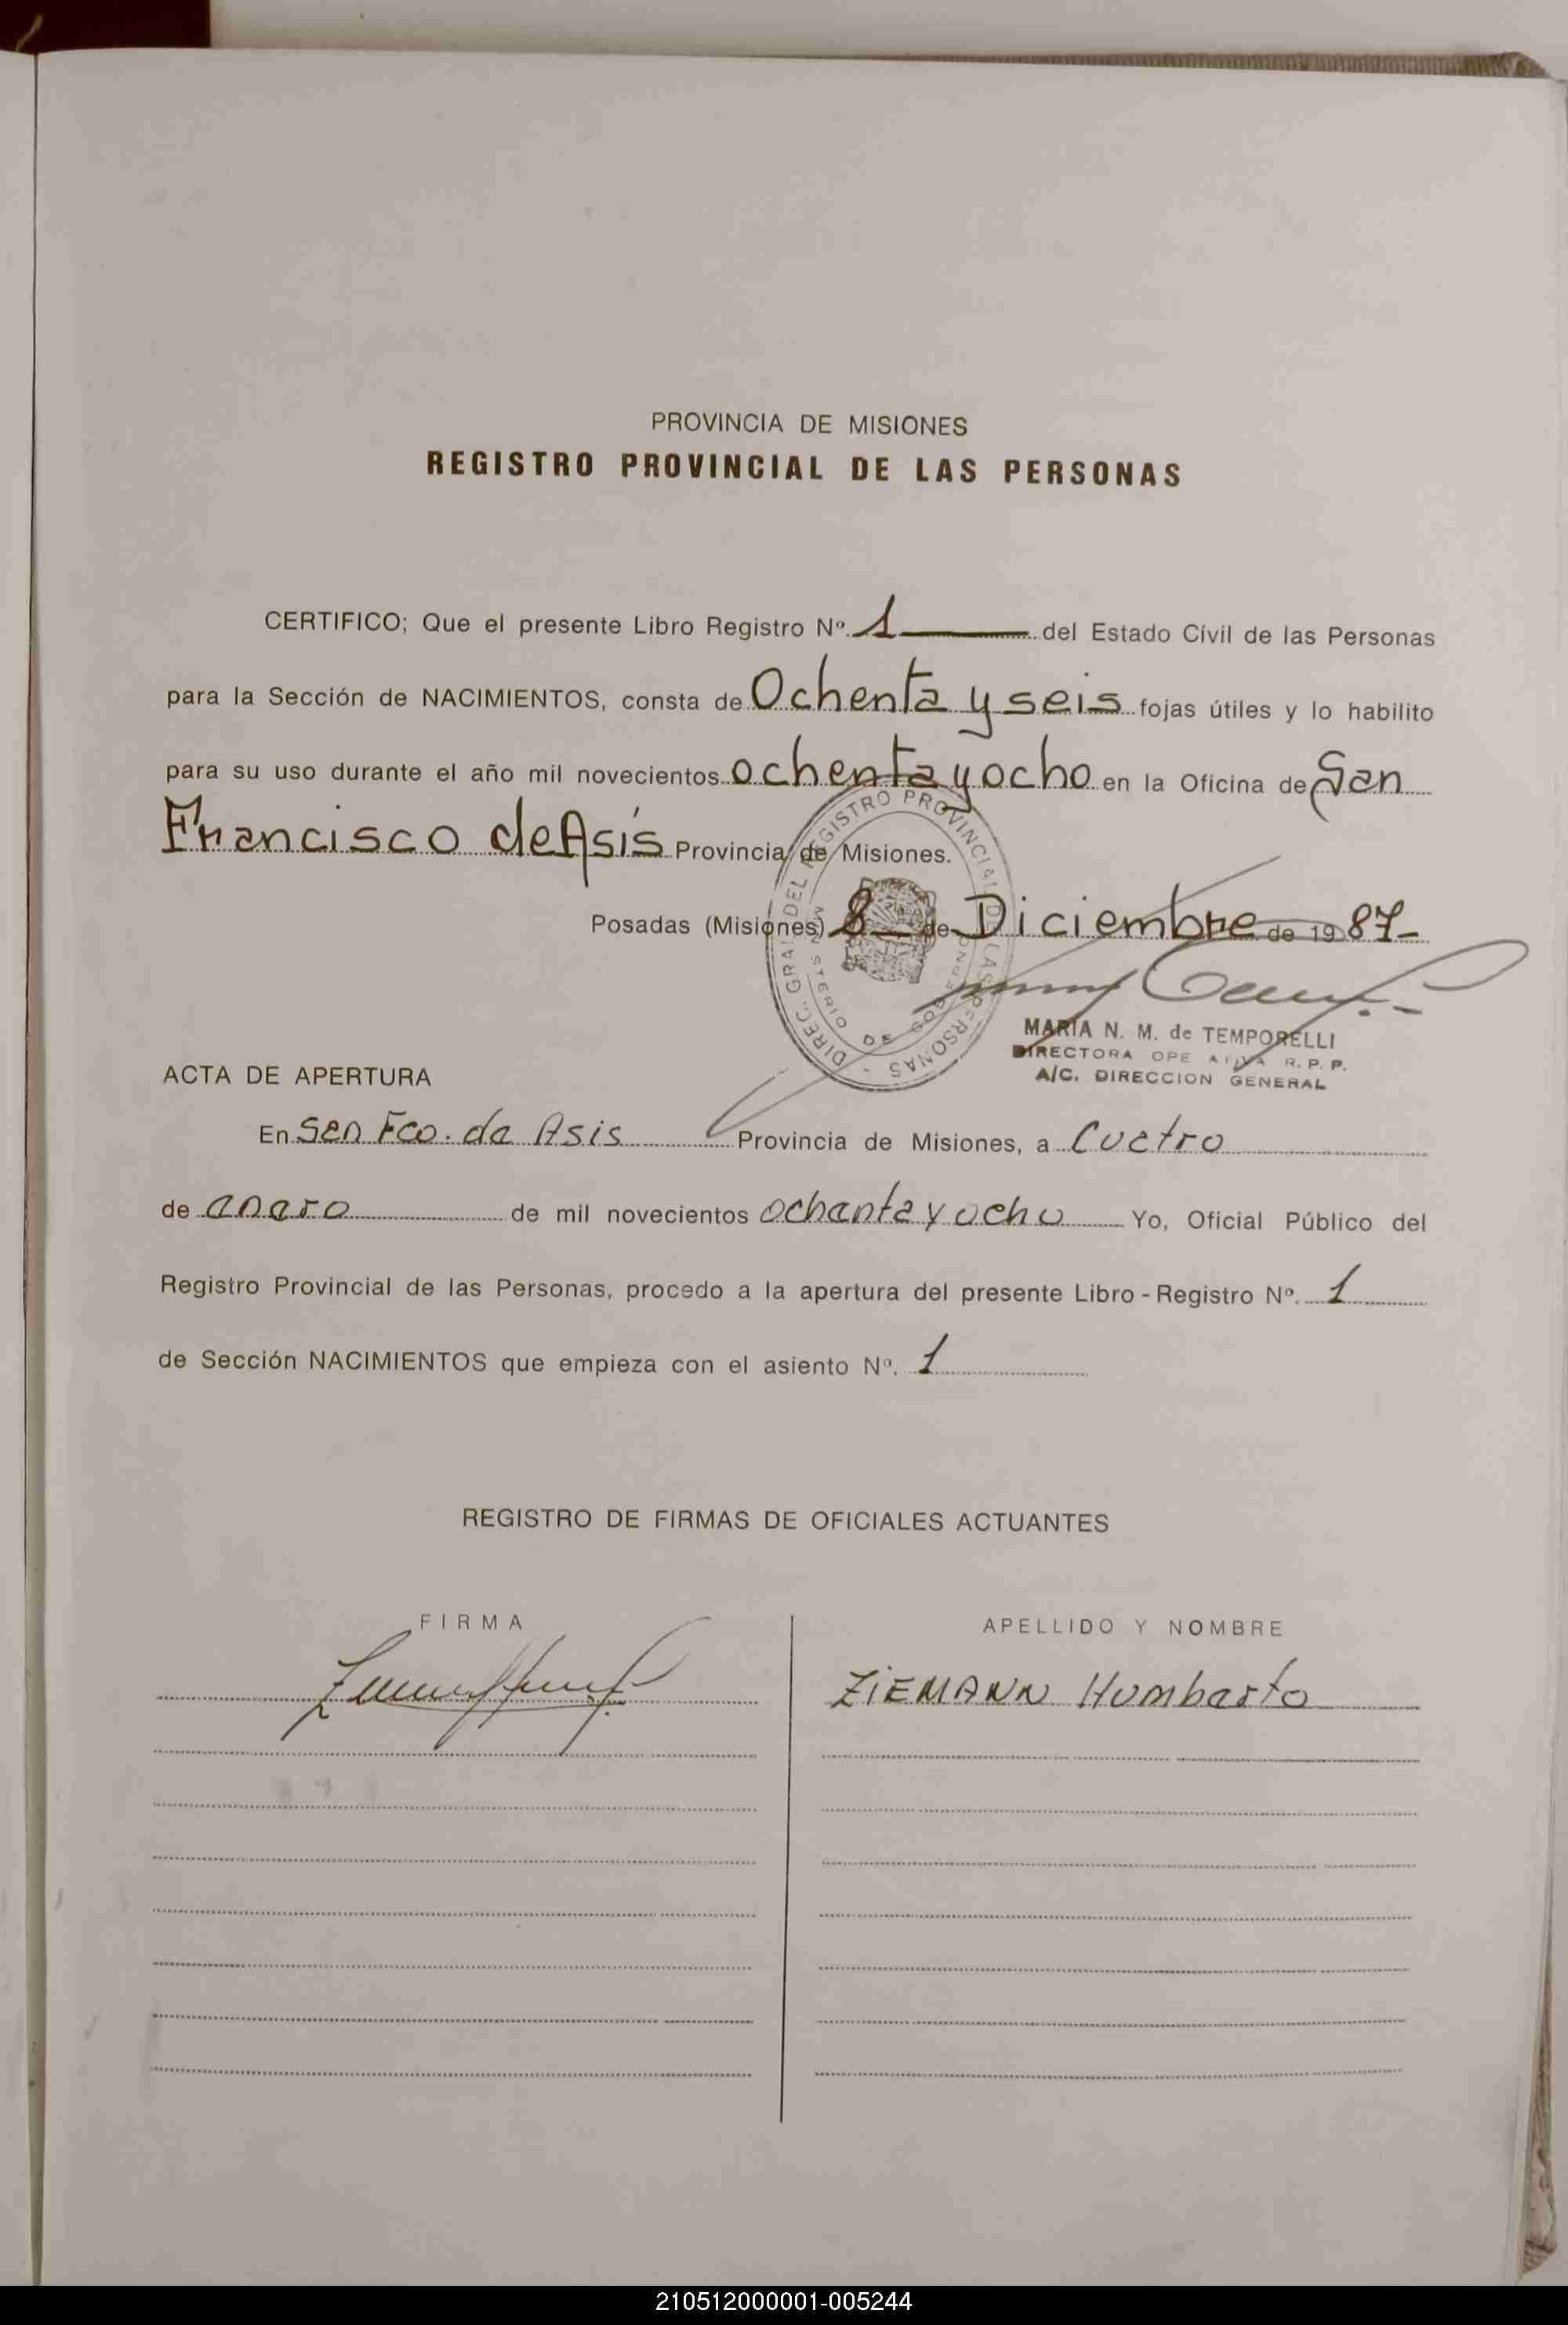 PROVINCIA DE MISIONES
REGISTRO PROVINCIAL DE LAS PERSONAS
CERTIFICO; Que el presente Libro Registro Nº. 1 del Estado Civil de las Personas
para la Sección de NACIMIENTOS, consta de Ochenta y seis fojas útiles y lo habilito
para su uso durante el año mil novecientos ochenta y ocho en la Oficina de San
Francisco de Asís Provincia de Misiones.
Posadas (Misiones) 8 de Diciembre de 1987-
DIREC. GRAL. DEL REGISTRO PROVINCIAL DE LAS PERSONAS -
MINISTERIO DE GOBIERNO
MARIA N. M. de TEMPORELLI
DIRECTORA OPE R. P. P.
A/C. DIRECCION GENERAL
ACTA DE APERTURA
En San Fco. de Asis Provincia de Misiones, a Cuatro
de enero de mil novecientos ochenta y ocho Yo, Oficial Público del
Registro Provincial de las Personas, procedo a la apertura del presente Libro - Registro Nº. 1
de Sección NACIMIENTOS que empieza con el asiento Nº. 1
REGISTRO DE FIRMAS DE OFICIALES ACTUANTES
FIRMA APELLIDO Y NOMBRE
ZiEMANN Humberto
210512000001-005244